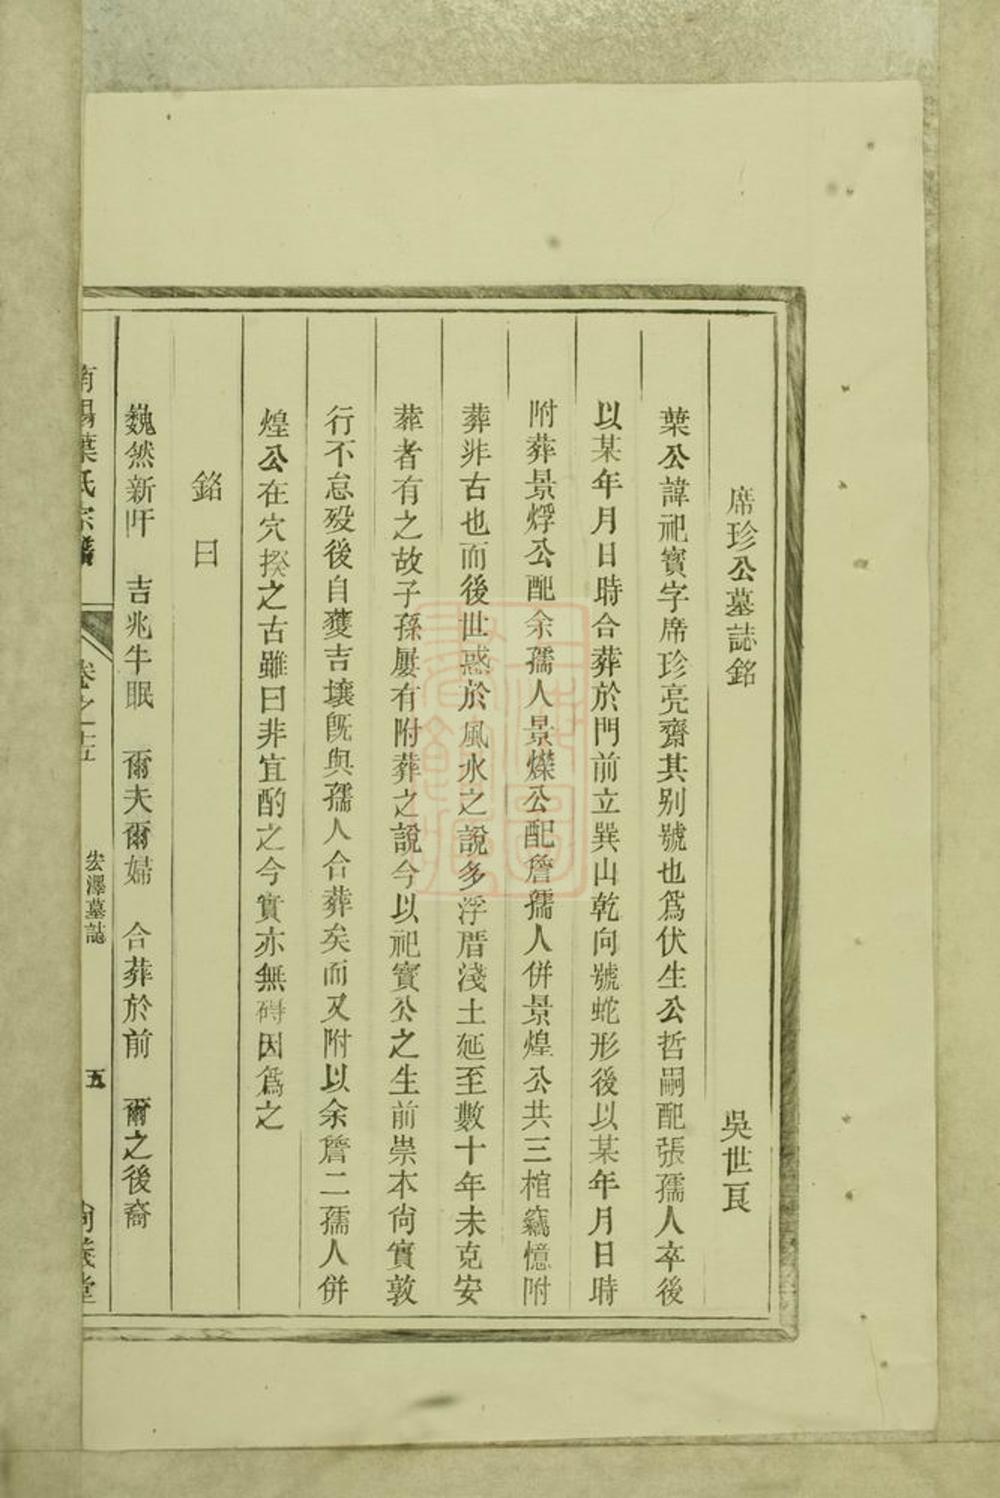 席珍公墓誌銘 吳世良
葉公諱祀寳字席珍亮齋其别號也爲伏生公哲嗣配張孺人卒後
以某年月日時合葬於門前立巽山乾向號蛇形後以某年月日時
附葬景烰公配余孺人景爃公配詹孺人併景煌公共三棺竊憶附
葬非古也而後世惑於風水之說多浮厝淺土延至數十年未克安
葬者有之故子孫屢有附葬之說今以祀寳公之生前崇本尙實敦
行不怠殁後自獲吉壤既與孺人合葬矣而又附以余詹二孺人併
煌公在穴揆之古雖曰非宜酌之今實亦無碍因爲之
銘曰
巍然新阡 吉兆牛眠 爾夫爾婦 合葬於前 爾之後裔
南陽葉氏宗譜 卷之十五 宏澤墓誌 五 尙義堂